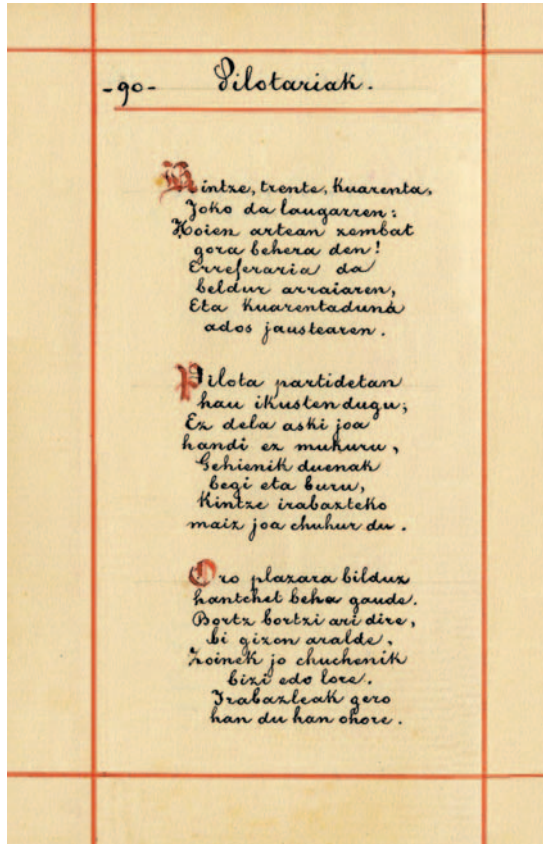 -90- Pilotariak.
Kintze, trente, kuarenta,
Joko da laugarren:
Hoien artean zembat
gora behera den!
Erreferaria da
beldur arraiaren,
Eta kuarentaduna
ados jaustearen.
Pilota partidetan
hau ikusten dugu;
Ez dela aski joa
handi ez mukuru,
Gehienik duenak
begi eta buru,
Kintze irabazteko
maiz joa chuhur du.
Oro plazara bilduz
hantchet beha gaude.
Bortz bortzi ari dire,
bi gizon aralde,
Zoinek jo chuchenik
bizi edo lore.
Irabazleak gero
han du han ohore.